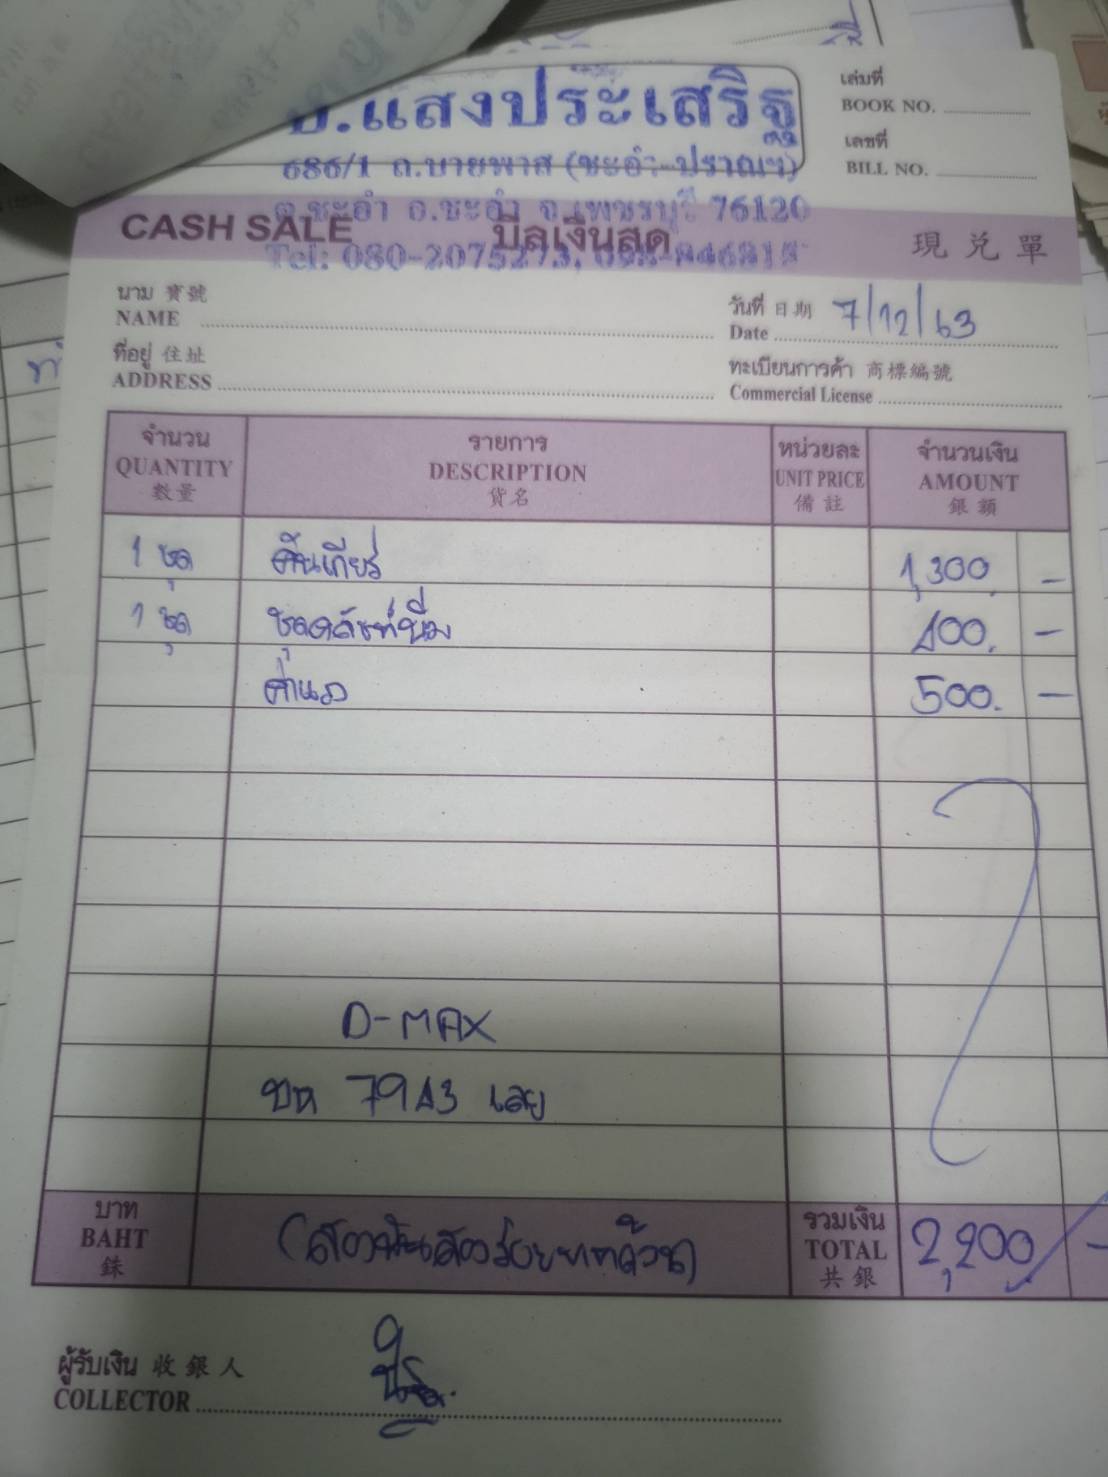 อ.แสงประเสริฐ
686/1 ถ.บายพาส (ชะอำ-ปราณฯ)
ต.ชะอำ อ.ชะอำ จ.เพชรบุรี 76120
Tel: 080-2075273,
เล่มที่
BOOK NO.
เลขที่
BILL NO.
CASH SALE บิลเงินสด 現兌單
นาม 寶號
NAME
วันที่ 日期
Date 7/12/63
ที่อยู่ 住址
ADDRESS
ทะเบียนการค้า 商標編號
Commercial License
จำนวน รายการ หน่วยละ จำนวนเงิน
QUANTITY DESCRIPTION UNIT PRICE AMOUNT
數量 貨名 備註 銀額
1 ชุด คันเกียร์ 1,300 -
1 ชุด ชุดคลัทช์ปั๊ม 400. -
ค่าแรง 500. -
D-MAX
บห 7943 เลย
บาท
BAHT
銖
(สองพันสองร้อยบาทถ้วน)
รวมเงิน
TOTAL
共銀
2,200 -
ผู้รับเงิน 收銀人
COLLECTOR